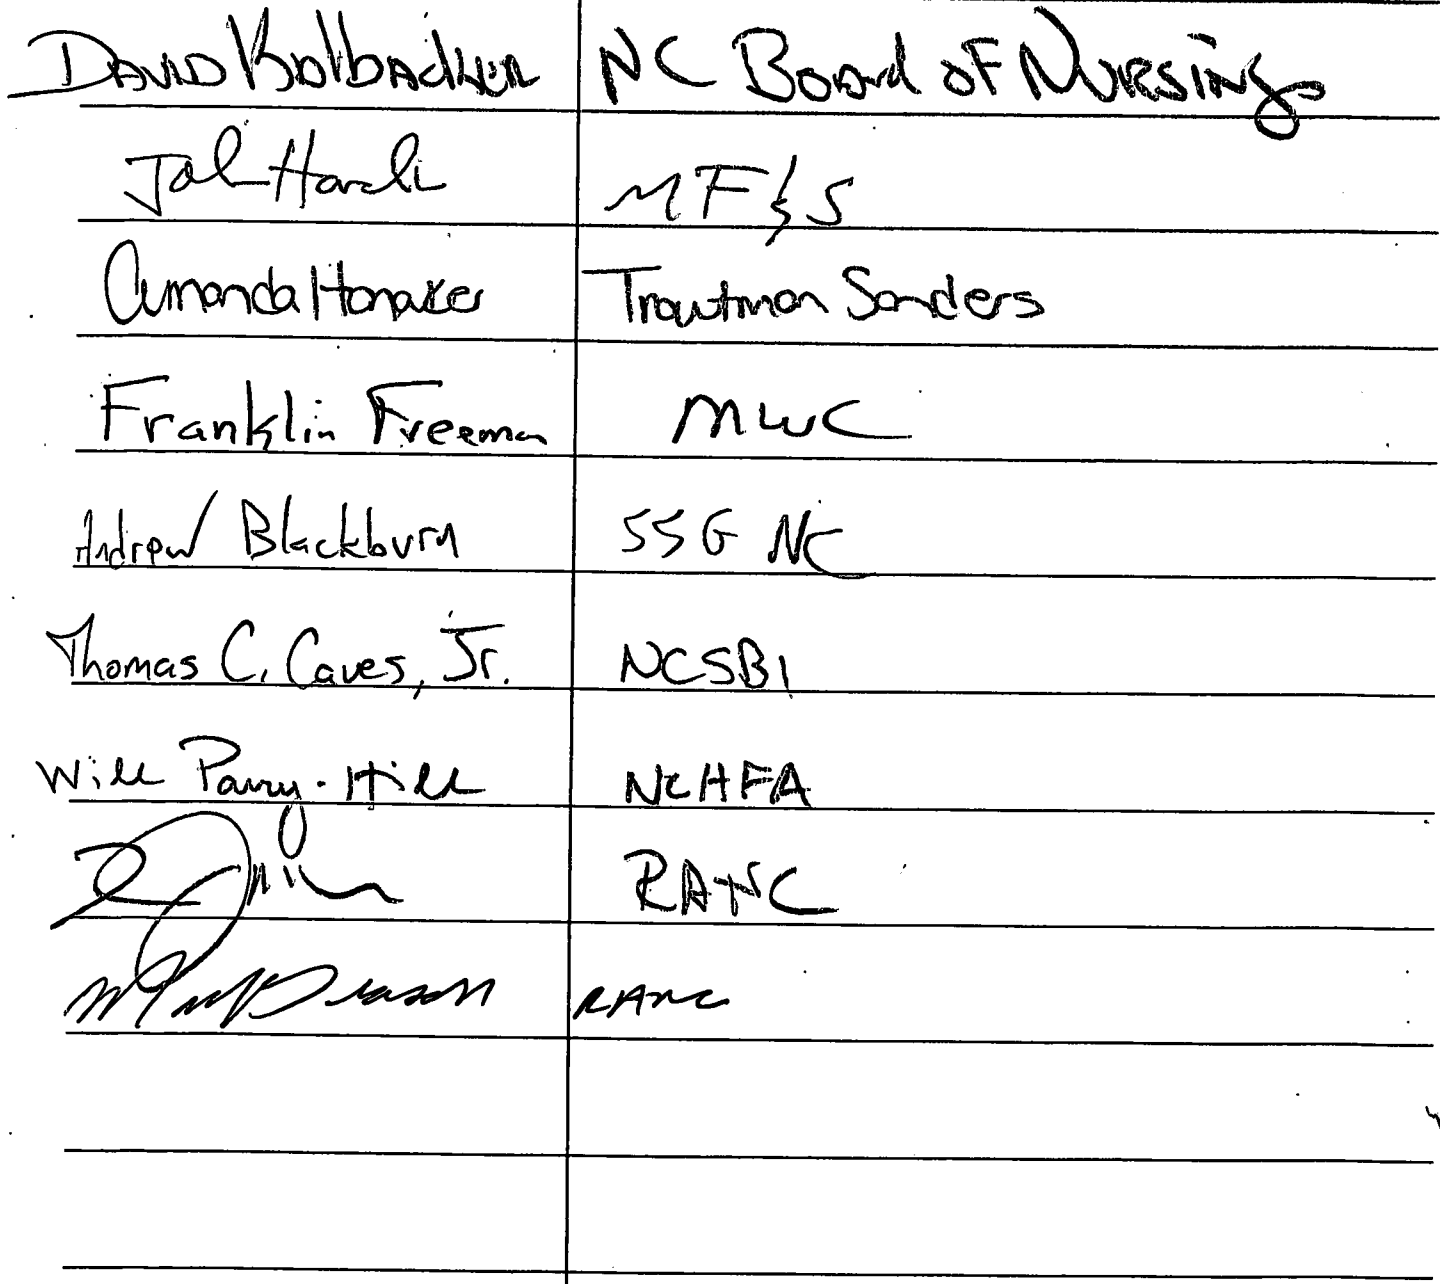 David Kalbacker NC Board of Nursing
John Hardi MF&S
Amanda Honaker Troutman Sanders
Franklin Freeman MWC
Andrew Blackburn SSG NC
Thomas C. Caves, Jr. NCSBI
Will Parry-Hill NCHFA
RANC
RANC